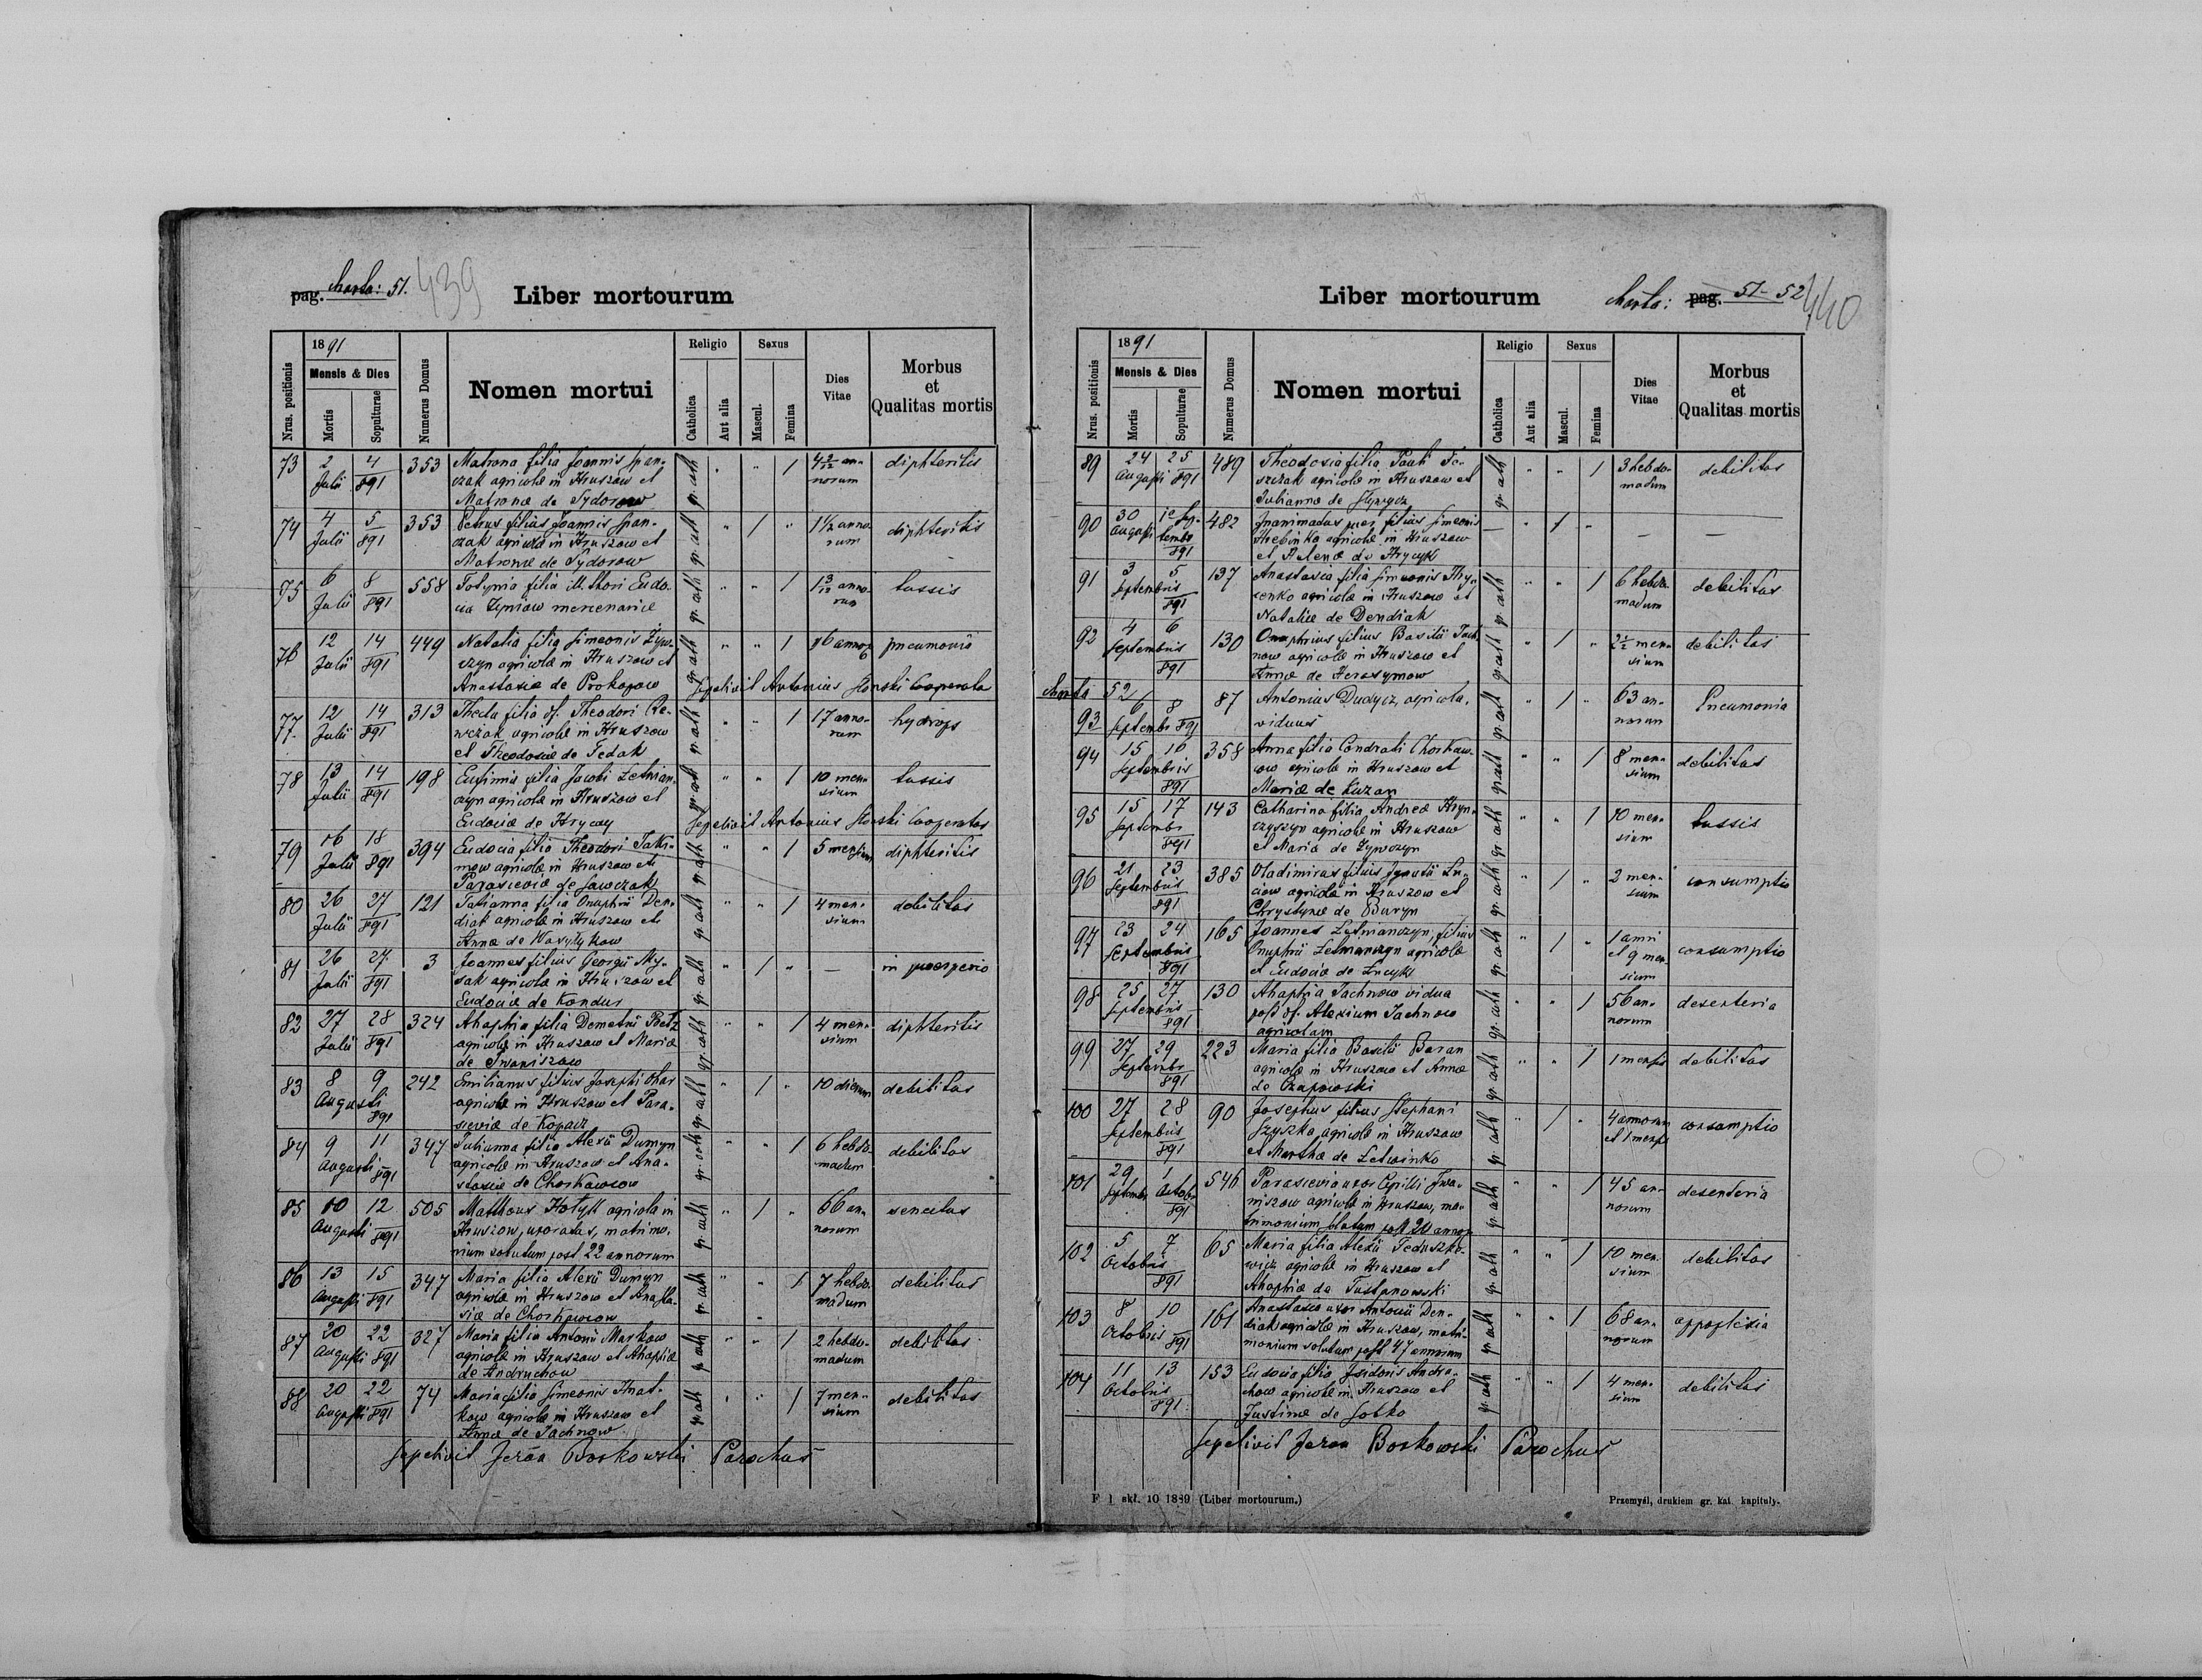 pag. charta: 51. 439
Liber mortourum
1891
Nrus. positionis
Mensis & Dies
Mortis
Sepulturae
Numerus Domus
Nomen mortui
Religio
Catholica
Aut alia
Sexus
Mascul.
Femina
Dies Vitae
Morbus
et
Qualitas mortis
73 2 4 353 Matrona filia Joannis
Julii 891 agricolæ in Hruszow et gr. cath 1 4 2/12 annorum diphteritis
Matronæ de Tydorow
74 4 5 353 Petrus filius Joannis
Julii 891 agricolæ in Hruszow et gr. cath 1 1 1/2 annorum diphteritis
Matronæ de Tydorow
75 6 8 558 filia Eudo-
Julii 891 cia mercenariæ gr. cath 1 1 3/12 annorum tussis
76 12 14 449 Natalia filia Simeonis
Julii 891 agricolæ in Hruszow et gr. cath 1 pneumonia
Anastasiæ de Prokopow Sepelivit Antonius Cooperator
77 12 14 313 Thecla filia Theodori
Julii 891 agricolæ in Hruszow gr. cath 1 17 annorum hydrops
et Theodosiæ de Fedak
78 13 14 198 Eufimia filia Jacobi Letnian-
Julii 891 czyn agricolæ in Hruszow et gr. cath 1 10 mensium tussis
Eudociæ de Sepelivit Antonius Cooperator
79 16 18 394 Eudocia filia Theodori Jaki-
Julii 891 mow agricolæ in Hruszow et gr. cath 1 5 mensium diphteritis
Parasieviæ de Sawczak
80 26 27 121 Tatianna filia Onuphrii Den-
Julii 891 diak agricolæ in Hruszow et gr. cath 1 4 mensium debilitas
Annæ de
81 26 27 3 Joannes filius Georgii
Julii 891 agricolæ in Hruszow et gr. cath 1 — in puerperio
Eudociæ de Kondur
82 27 28 324 Ahaphia filia Demetrii
Julii 891 agricolæ in Hruszow et Mariæ gr. cath 1 4 mensium diphteritis
de Iwaniszow
83 8 9 242 Emilianus filius Josephi
Augusti 891 agricolæ in Hruszow et Para- gr. cath 1 10 dierum debilitas
sieviæ de Kopacz
84 9 11 347 Julianna filia Alexii Dumyn
Augusti 891 agricolæ in Hruszow et Ana- gr. cath 1 6 hebdomadum debilitas
stasiæ de Chorkawcow
85 10 12 505 Matthæus Hołyk agricola in
Augusti 891 Hruszow, uxoratus, matrimo- gr. cath 1 66 annorum senectus
nium solutum post 22 annorum
86 13 15 347 Maria filia Alexii Dumyn
Augusti 891 agricolæ in Hruszow et Anasta- gr. cath 1 7 hebdomadum debilitas
siæ de Chorkawcow
87 20 22 327 Maria filia Antonii Markow
Augusti 891 agricolæ in Hruszow et Ahaphiæ gr. cath 1 2 hebdomadum debilitas
de Andruchow
88 20 22 74 Maria filia Simeonis Hnat-
Augusti 891 kow agricolæ in Hruszow et gr. cath 1 7 mensium debilitas
Annæ de Jachnow
Sepelivit Boskowski Parochus
Liber mortourum
charta: pag. 51-52 440
1891
Nrus. positionis
Mensis & Dies
Mortis
Sepulturae
Numerus Domus
Nomen mortui
Religio
Catholica
Aut alia
Sexus
Mascul.
Femina
Dies Vitae
Morbus
et
Qualitas mortis
89 24 25 489 Theodosia filia Pauli
Augusti 891 agricolæ in Hruszow et gr. cath 1 3 hebdomadum debilitas
Juliannæ de
90 30 482 puer filius Simeonis
Augusti 891 Hrebinka agricolæ in Hruszow — 1 — —
et Helenæ de Hrycyk
91 3 5 137 Anastasia filia Simeonis
Septembris 891 agricolæ in Hruszow et gr. cath 1 6 hebdomadum debilitas
Nataliæ de Dendiak
92 4 6 130 Onuphrius filius Basilii Jach-
Septembris 891 now agricolæ in Hruszow et gr. cath 1 2 1/2 mensium debilitas
Annæ de Herasymow
charta 52
93 6 8 87 Antonius Dudycz, agricola,
Septembr 891 viduus gr. cath 1 63 annorum Pneumonia
94 15 16 358 Anna filia Condrati Chorkaw-
Septembris 891 cow agricolæ in Hruszow et gr. cath 1 8 mensium debilitas
Mariæ de Kuzan
95 15 17 143 Catharina filia Andreæ Hryn-
Septembr 891 czyszyn agricolæ in Hruszow gr. cath 1 10 mensium tussis
et Mariæ de
96 21 23 385 Vladimirus filius Ignatii
Septembris 891 agricolæ in Hruszow et gr. cath 1 2 mensium consumptio
Chrystynæ de Buryn
97 23 24 165 Joannes Letnianczyn, filius
Septembris 891 Onuphrii Letnianczyn agricolæ gr. cath 1 1 anni et 9 mensium consumptio
et Eudociæ de
98 25 27 130 Ahaphia Jachnow vidua
Septembris 891 post Alexium Jachnow gr. cath 1 56 annorum desenteria
agricolam
99 27 29 223 Maria filia Basilii Baran
Septembr 891 agricolæ in Hruszow et Annæ gr. cath 1 1 mensis debilitas
de Czapowski
100 27 28 90 Josephus filius Stephani
Septembris 891 Szyszka agricolæ in Hruszow gr. cath 1 4 annorum et 1 mensis consumptio
et Marthæ de
101 29 1 546 Parasievia uxor Cyrilli Iwa-
Septembr Octobr 891 niszow agricolæ in Hruszow, ma- gr. cath 1 45 annorum desenteria
trimonium post 20 annor
102 5 7 65 Maria filia Alexii Feduszke-
Octobris 891 wicz agricolæ in Hruszow et gr. cath 1 10 mensium debilitas
Ahaphiæ de Tustanowski
103 8 10 161 Anastasia uxor Antonii Den-
Octobris 891 diak agricolæ in Hruszow, matri- gr. cath 1 68 annorum appoplexia
monium solutum post 47 annorum
104 11 13 153 Eudocia filia Isidoris Andru-
Octobris 891 chow agricolæ in Hruszow et gr. cath 1 4 mensium debilitas
Justinæ de Sobko
Sepelivit Boskowski Parochus
F 1 skł. 10 1889 (Liber mortourum.)
Przemyśl, drukiem gr. kat. kapituły.